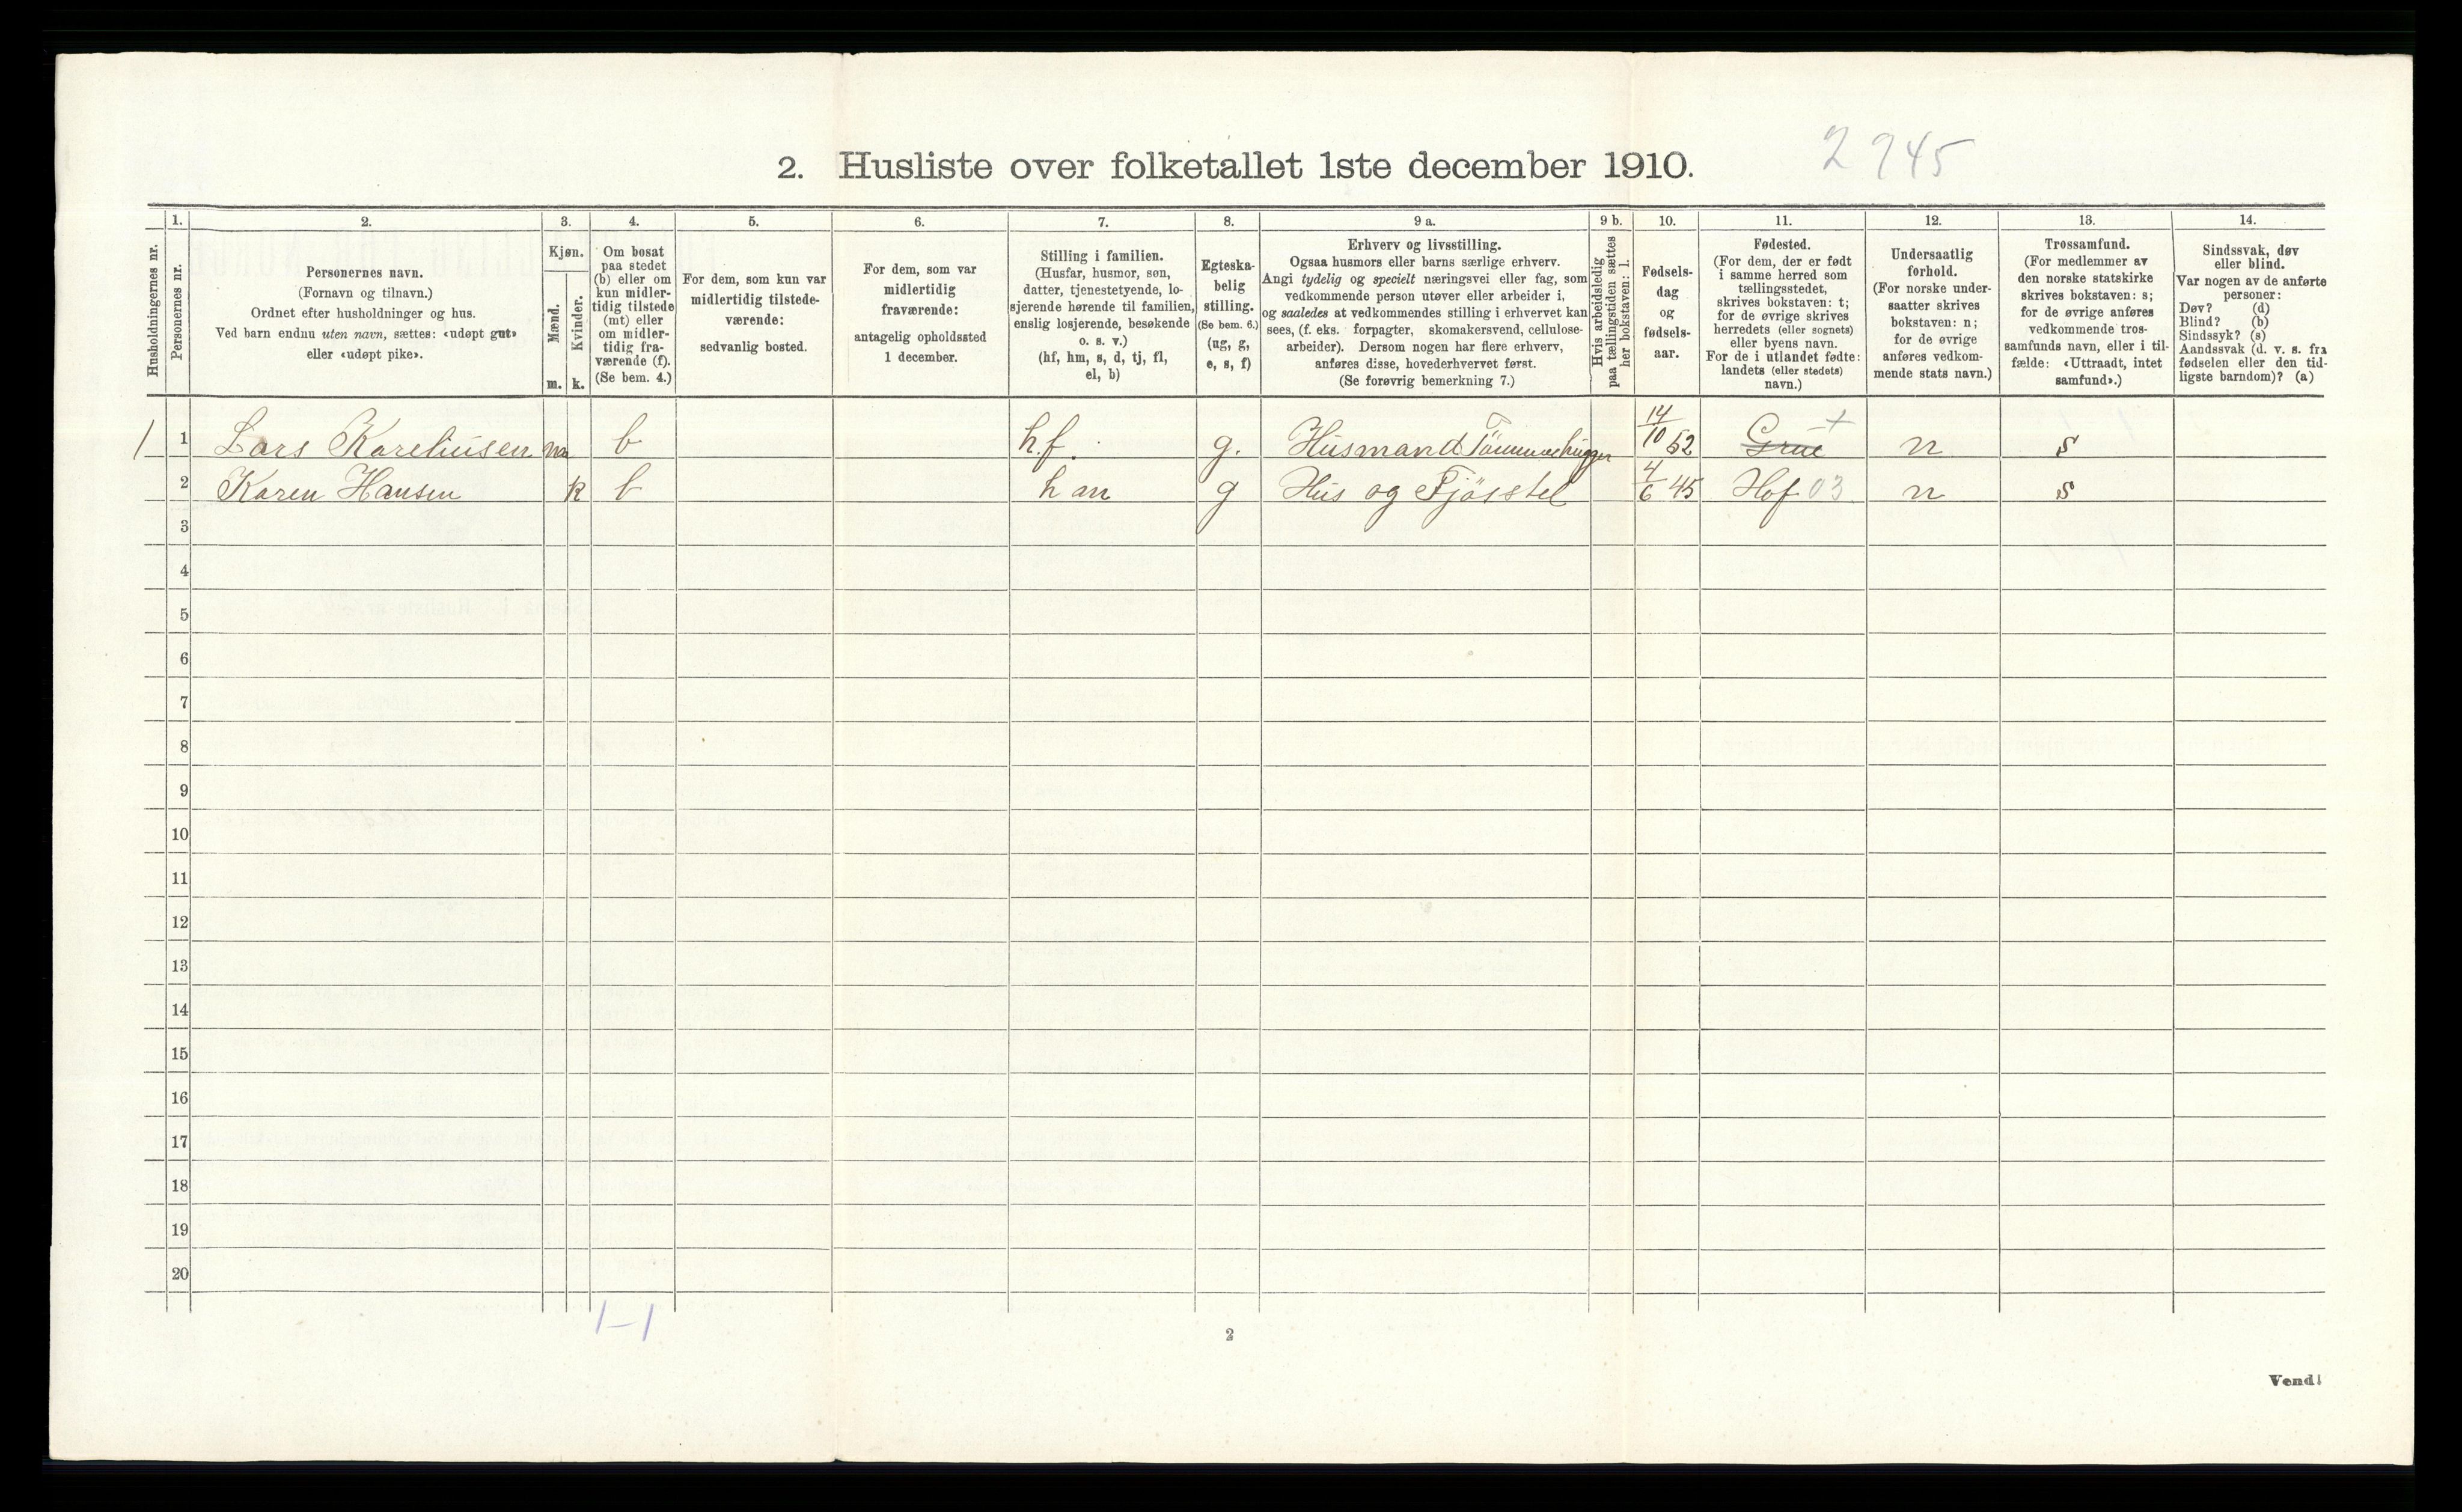 2. Husliste over folketallet 1ste december 1910.
2945
Husholdningernes nr.
1.
Personernes nr.
2.
Personernes navn.
(Fornavn og tilnavn.)
Ordnet efter husholdninger og hus.
Ved barn endnu uten navn, sættes: «udøpt gut»
eller «udøpt pike».
3.
Kjøn.
Mænd.
Kvinder.
m. k.
4.
Om bosat
paa stedet
(b) eller om
kun midler-
tidig tilstede
(mt) eller
om midler-
tidig fra-
værende (f).
(Se bem. 4.)
5.
For dem, som kun var
midlertidig tilstede-
værende:
sedvanlig bosted.
6.
For dem, som var
midlertidig
fraværende:
antagelig opholdssted
1 december.
7.
Stilling i familien.
(Husfar, husmor, søn,
datter, tjenestetyende, lo-
sjerende hørende til familien,
enslig losjerende, besøkende
o. s. v.)
(hf, hm, s, d, tj, fl,
el, b)
8.
Egteska-
belig
stilling.
(Se bem. 6.)
(ug, g,
e, s, f)
9 a.
Erhverv og livsstilling.
Ogsaa husmors eller barns særlige erhverv.
Angi tydelig og specielt næringsvei eller fag, som
vedkommende person utøver eller arbeider i,
og saaledes at vedkommendes stilling i erhvervet kan
sees, (f. eks. forpagter, skomakersvend, cellulose-
arbeider). Dersom nogen har flere erhverv,
anføres disse, hovederhvervet først.
(Se forøvrig bemerkning 7.)
9 b.
Hvis arbeidsledig
paa tællingstiden sættes
her bokstaven: l.
10.
Fødsels-
dag
og
fødsels-
aar.
11.
Fødested.
(For dem, der er født
i samme herred som
tællingsstedet,
skrives bokstaven: t;
for de øvrige skrives
herredets (eller sognets)
eller byens navn.
For de i utlandet fødte:
landets (eller stedets)
navn.)
12.
Undersaatlig
forhold.
(For norske under-
saatter skrives
bokstaven: n;
for de øvrige
anføres vedkom-
mende stats navn.)
13.
Trossamfund.
(For medlemmer av
den norske statskirke
skrives bokstaven: s;
for de øvrige anføres
vedkommende tros-
samfunds navn, eller i til-
fælde: «Uttraadt, intet
samfund».)
14.
Sindssvak, døv
eller blind.
Var nogen av de anførte
personer:
Døv? (d)
Blind? (b)
Sindssyk? (s)
Aandssvak (d. v. s. fra
fødselen eller den tid-
ligste barndom)? (a)
1 1 Lars Kareliusen m b h.f. g. Husmand Tömmerhugger 14/10 52 Grue t n s
2 Karen Hansen k b hm g Hus og Fjösstel 4/6 45 Hof 03 n s
3
4
5
6
7
8
9
10
11
12
13
14
15
16
17
18
19
20
1–1
2
Vend!